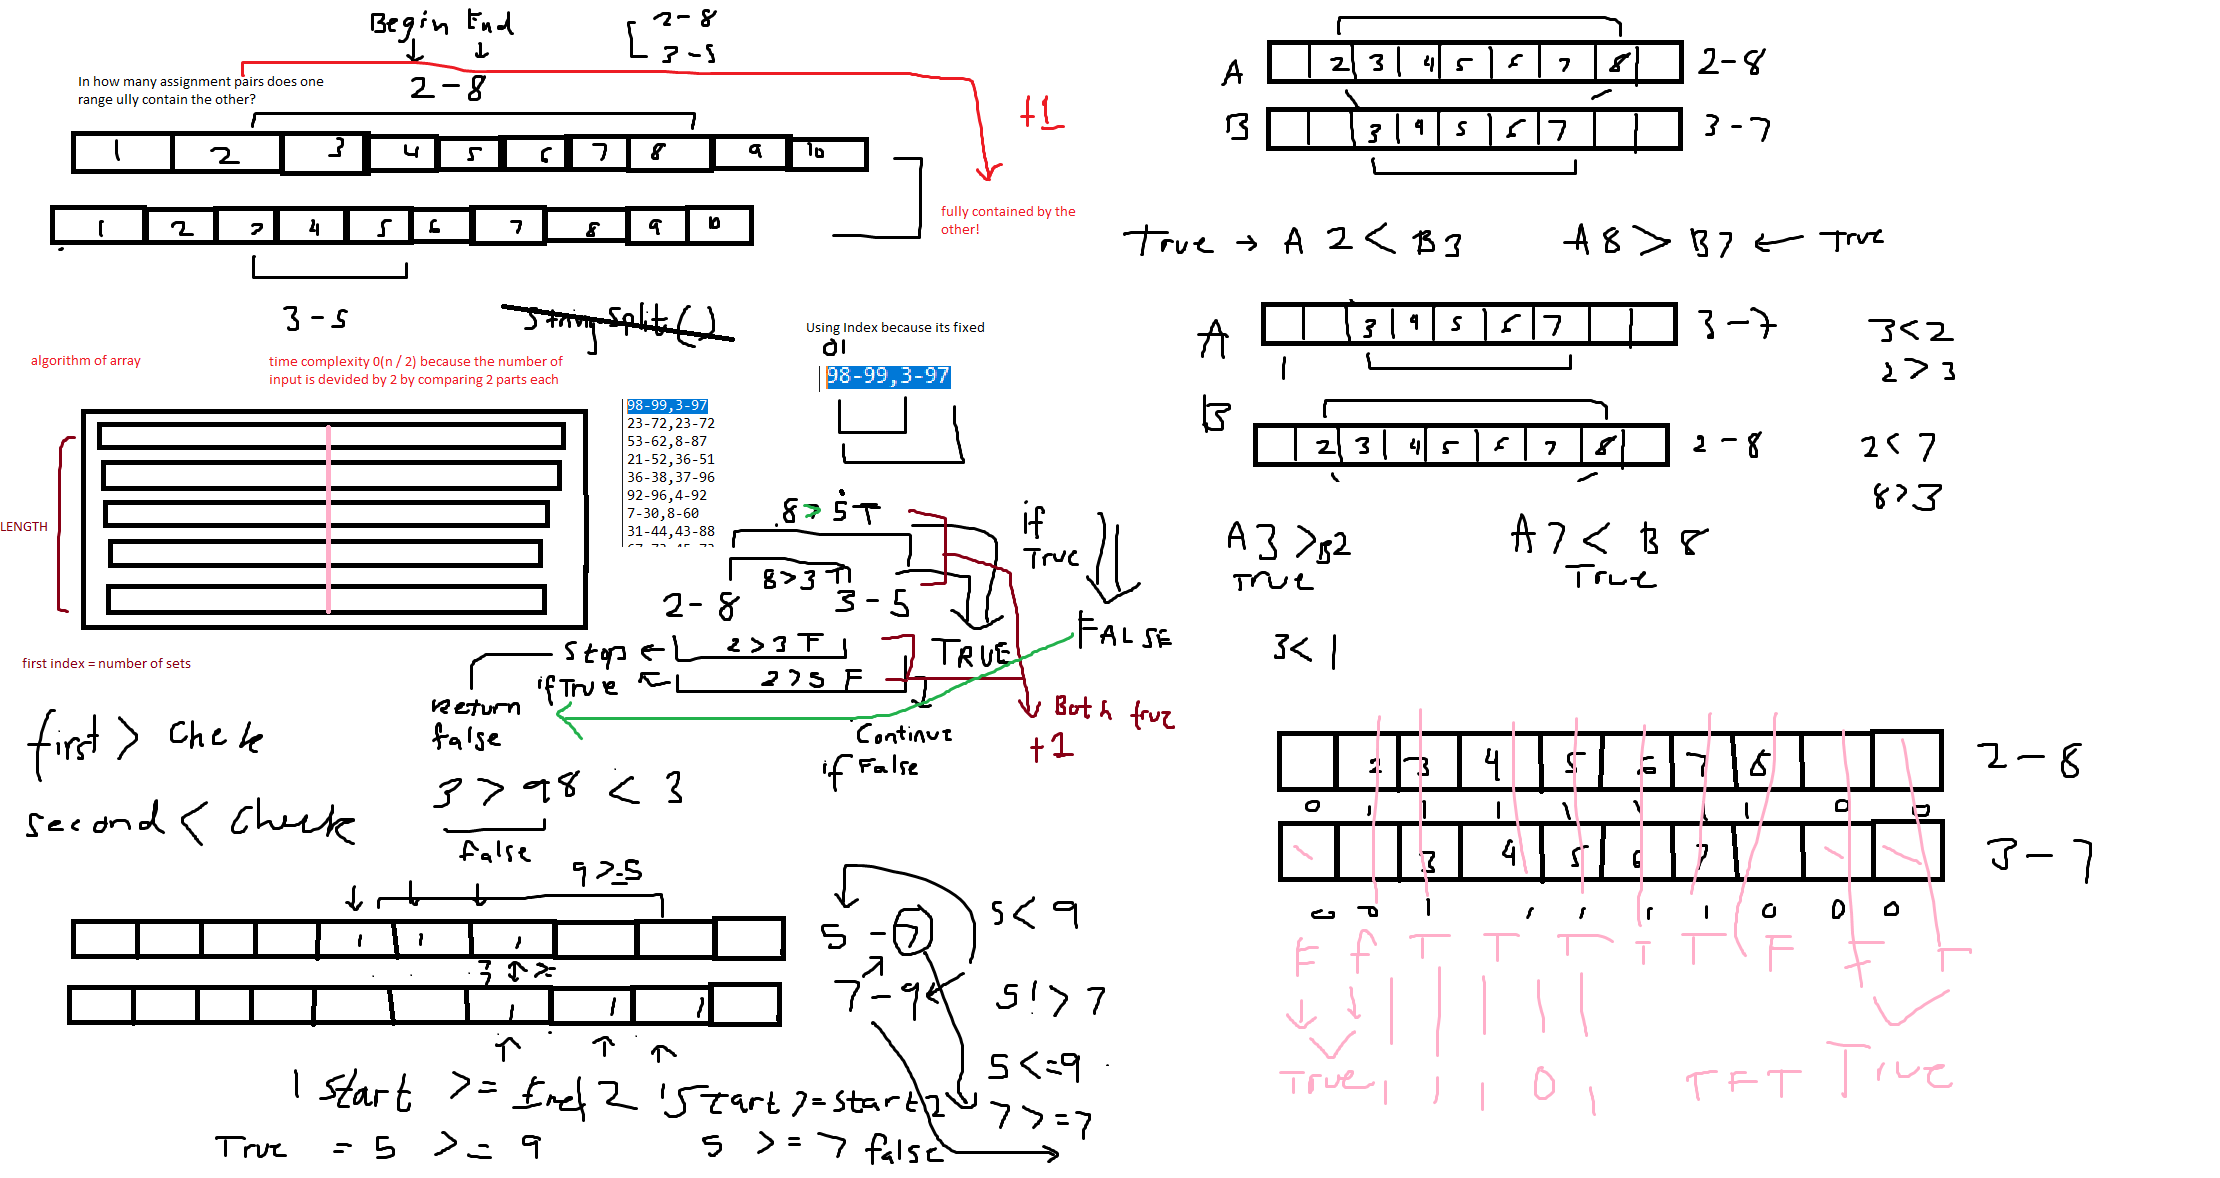 Begin End
2-8
3-5
In how many assignment pairs does one
range ully contain the other?
2-8
+1
1 2 3 4 5 6 7 8 9 10
fully contained by the
other!
1 2 3 4 5 6 7 8 9 10
3-5
String Split()
Using Index because its fixed
01
98-99,3-97
algorithm of array
time complexity 0(n / 2) because the number of
input is devided by 2 by comparing 2 parts each
98-99,3-97
23-72,23-72
53-62,8-87
21-52,36-51
36-38,37-96
92-96,4-92
7-30,8-60
31-44,43-88
LENGTH
first index = number of sets
8>5 T
8>3 T
2-8 3-5
if
True
FALSE
TRUE
Stops
if True
2>3 F
2>5 F
Return
false
Continue
if False
Both true
+1
first > check
second < check
3 > 98 < 3
false
9>=5
1 1 1
1 1 1
5-7
7-9
5<9
5!>7
5<=9
7>=7
1 start >= End 2
1 Start >= start 2
True = 5 >= 9
5 >= 7 false
A 2 3 4 5 6 7 8 2-8
B 3 4 5 6 7 3-7
True → A 2 < B 3
A 8 > B 7 ← True
A 3 4 5 6 7 3-7
1
3<2
2>3
B 2 3 4 5 6 7 8 2-8
2<7
8>3
A 3 > B2
True
A 7 < B 8
True
3<1
2 3 4 5 6 7 8 2-8
0 1 1 1 1 1 1 1 0 0
3 4 5 6 7 3-7
0 0 1 1 1 1 1 0 0 0
F f T T T T T F F T
True 1 1 1 0 1 T F T True